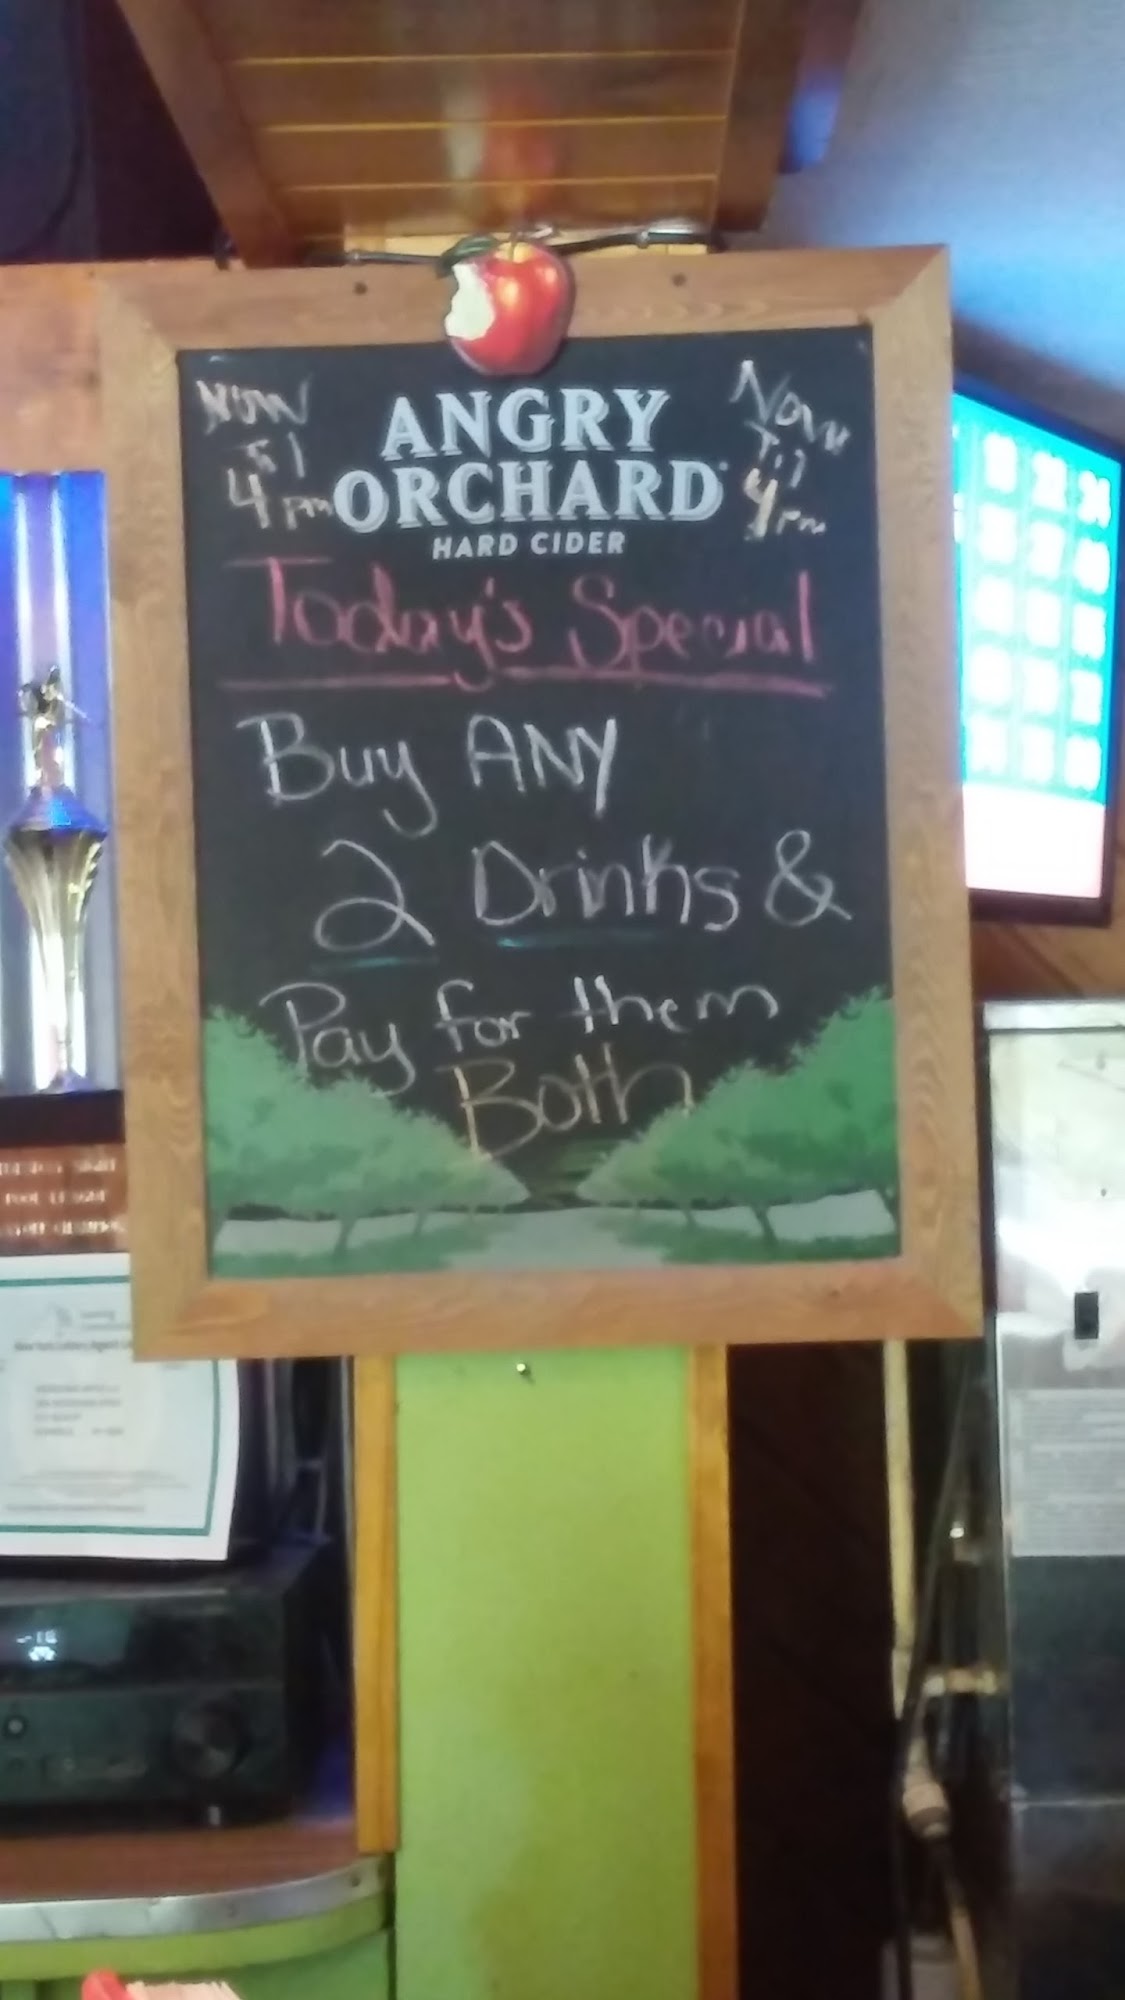 NOW
Til
4 pm
ANGRY
ORCHARD
HARD CIDER
Now
Til
4 pm
Today's Special
Buy ANY
2 Drinks &
Pay for them
Both
POOL LEAGUE